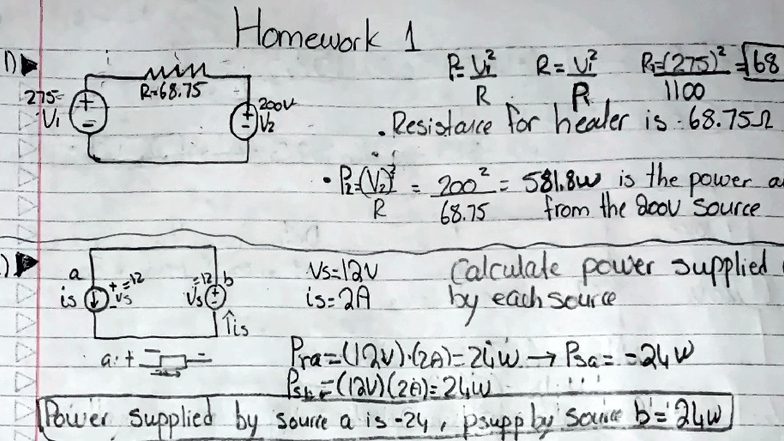 Homework 1
1)
275=
V1
R=68.75
200V
V2
P=V1²/R R=V²/P R=(275)²/1100=68
• Resistance for heater is :68.75Ω
• P2=(V2)²/R = 200²/68.75 = 581.8w is the power
from the 200V source
)
a
is
+ Vs=12
-
=12 b
Vs
↑is
a: + -
Vs=12V
is=2A
Calculate power supplied
by each source
Pra=(12V)·(2A)=24w → Psa= -24W
Psb=(12V)(2A)=24W
Power supplied by source a is -24, psupp by source b = 24w